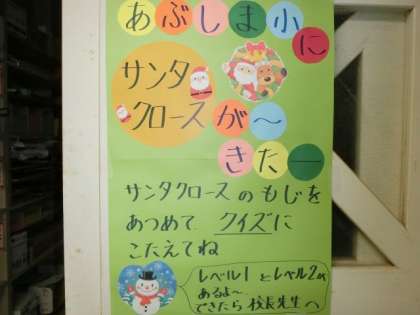 あぶしま小に
サンタ
クロースが～
きたー
サンタクロースのもじを
あつめて クイズに
こたえてね
レベル1とレベル2が
あるよ～
できたら校長先生へ